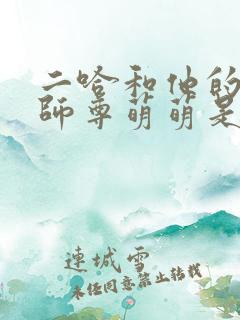 二哈和他的
師尊萌萌是
連城雪
未经同意禁止转载